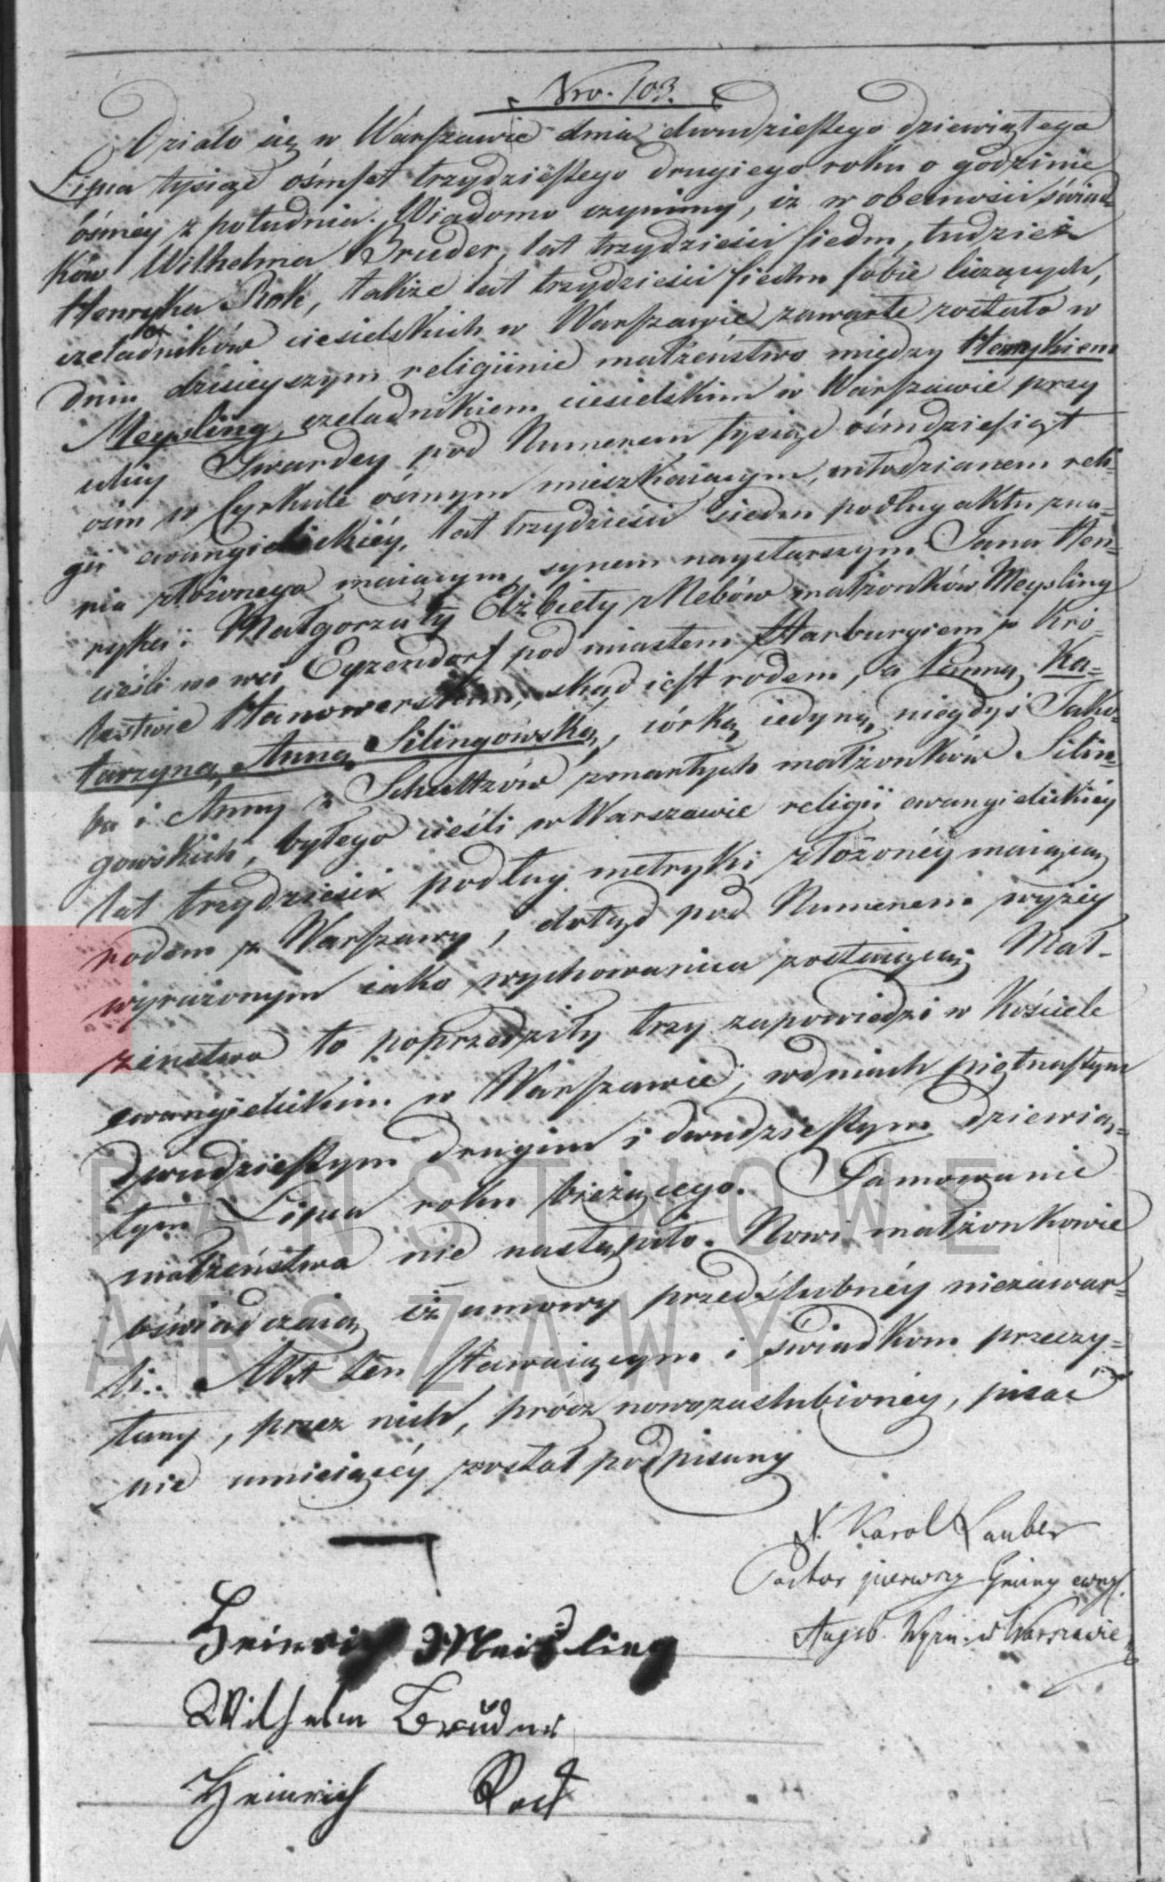 Nro. 103.
Działo się w Warszawie dnia dwudziestego dziewiątego
Lipca tysiąc ośmset trzydziestego drugiego roku o godzinie
ósméy z południa. Wiadomo czynimy, iż w obecności świad
ków Wilhelma Bruder, lat trzydzieści siedm, tudzież
Henryka Rok, także lat trzydzieści siedm sobie liczących,
czeladników ciesielskich w Warszawie zawarte zostało w
dniu dzisieyszym religiinie małżeństwo między Henrykiem
Meysling, czeladnikiem ciesielskim w Warszawie przy
ulicy Twardey pod Numerem tysiąc ośmdziesiąt
ośm w Cyrkule ósmym mieszkaiącym, młodzianem reli-
gii ewangielickiéy, lat trzydzieści siedm podług aktu zna-
nia złożonego maiącym, synem naystarszym Jana Hen-
ryka i Małgorzaty Elżbiety z Mebów małżonków Meysling
cieśli we wsi pod miastem Harburgiem w Kró-
lestwie Hanowerskim, skąd iest rodem, a Panną Ka=
tarzyną Anną Silingowską, córką iedyną niegdyś Jako-
ba i Anny z Schultzów zmarłych małżonków Silin
gowskich, byłego cieśli w Warszawie religii ewangielickiéy
lat trzydzieści podług metryki złożonéy maiącą
rodem z Warszawy, dotąd pod Numerem wyżéy
wyrażonym iako wychowanica zostaiącą. Mał-
żeństwo to poprzedziły trzy zapowiedzi w Kościele
ewangielickim w Warszawie, w dniach piętnastym
dwudziestym drugim i dwudziestym dziewią=
tym Lipca roku bieżącego. Tamowanie
małżeństwa nie nastąpiło. Nowi małżonkowie
oświadczaią iż umowy przedślubnéy niezawar=
li. Akt ten stawaiącym i świadkom przeczy=
tany, przez nich, prócz nowozaślubionéy, pisać
nie umieiącéy został podpisany
X. Karol Lauber
Pastor pierwszy Gminy ewng.
Augsb. Wyzn. w Warszawie
Heinrich Meisling
Wilhelm Bruder
Heinrich Rock
PAŃSTWOWE
WARSZAWY